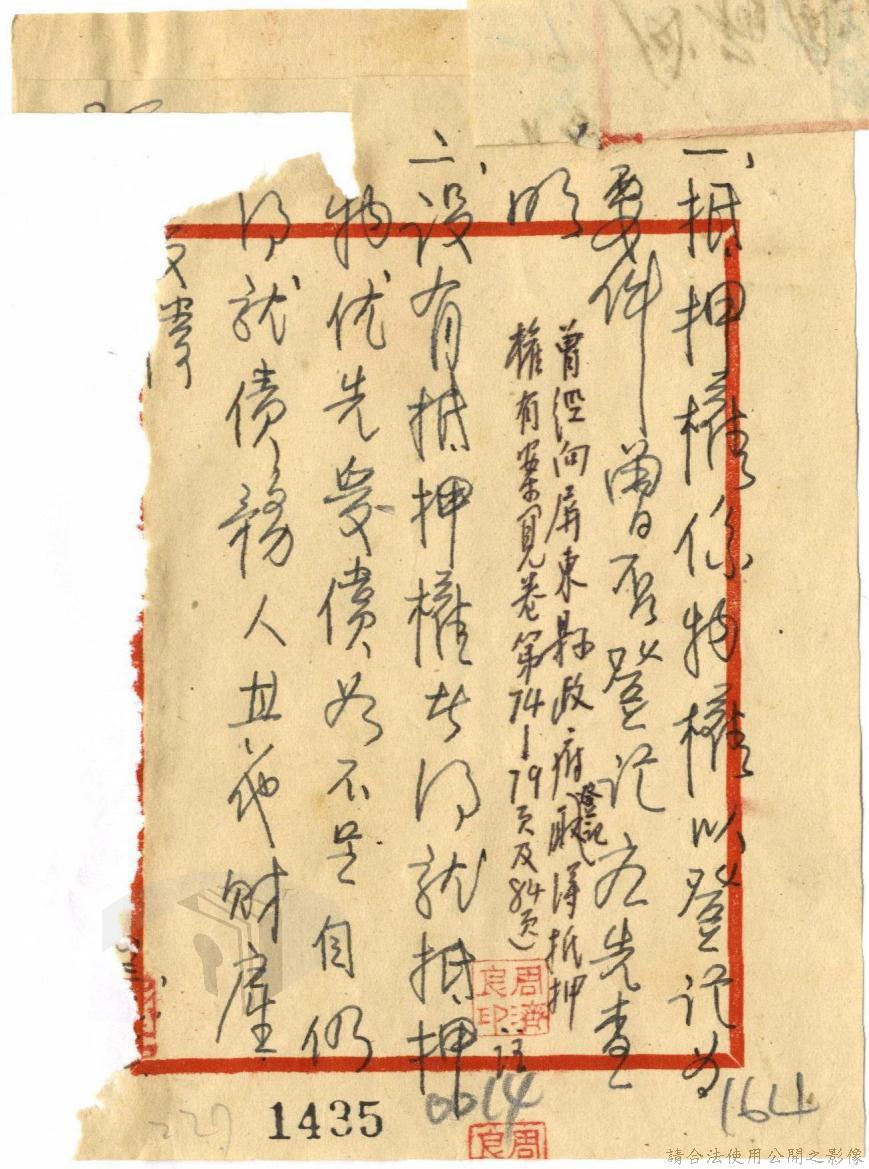 一、抵押權係物權以登記為
要件曾否登記应先查
明
曾經向屏東縣政府登記取得抵押
權有案(見卷第74-79頁及84頁)
二、设有抵押權者得就抵押
物优先受償如不足自仍
得就債務人其他財產
周濟良印
註
1435
0014
164
227
周良
請合法使用公開之影像